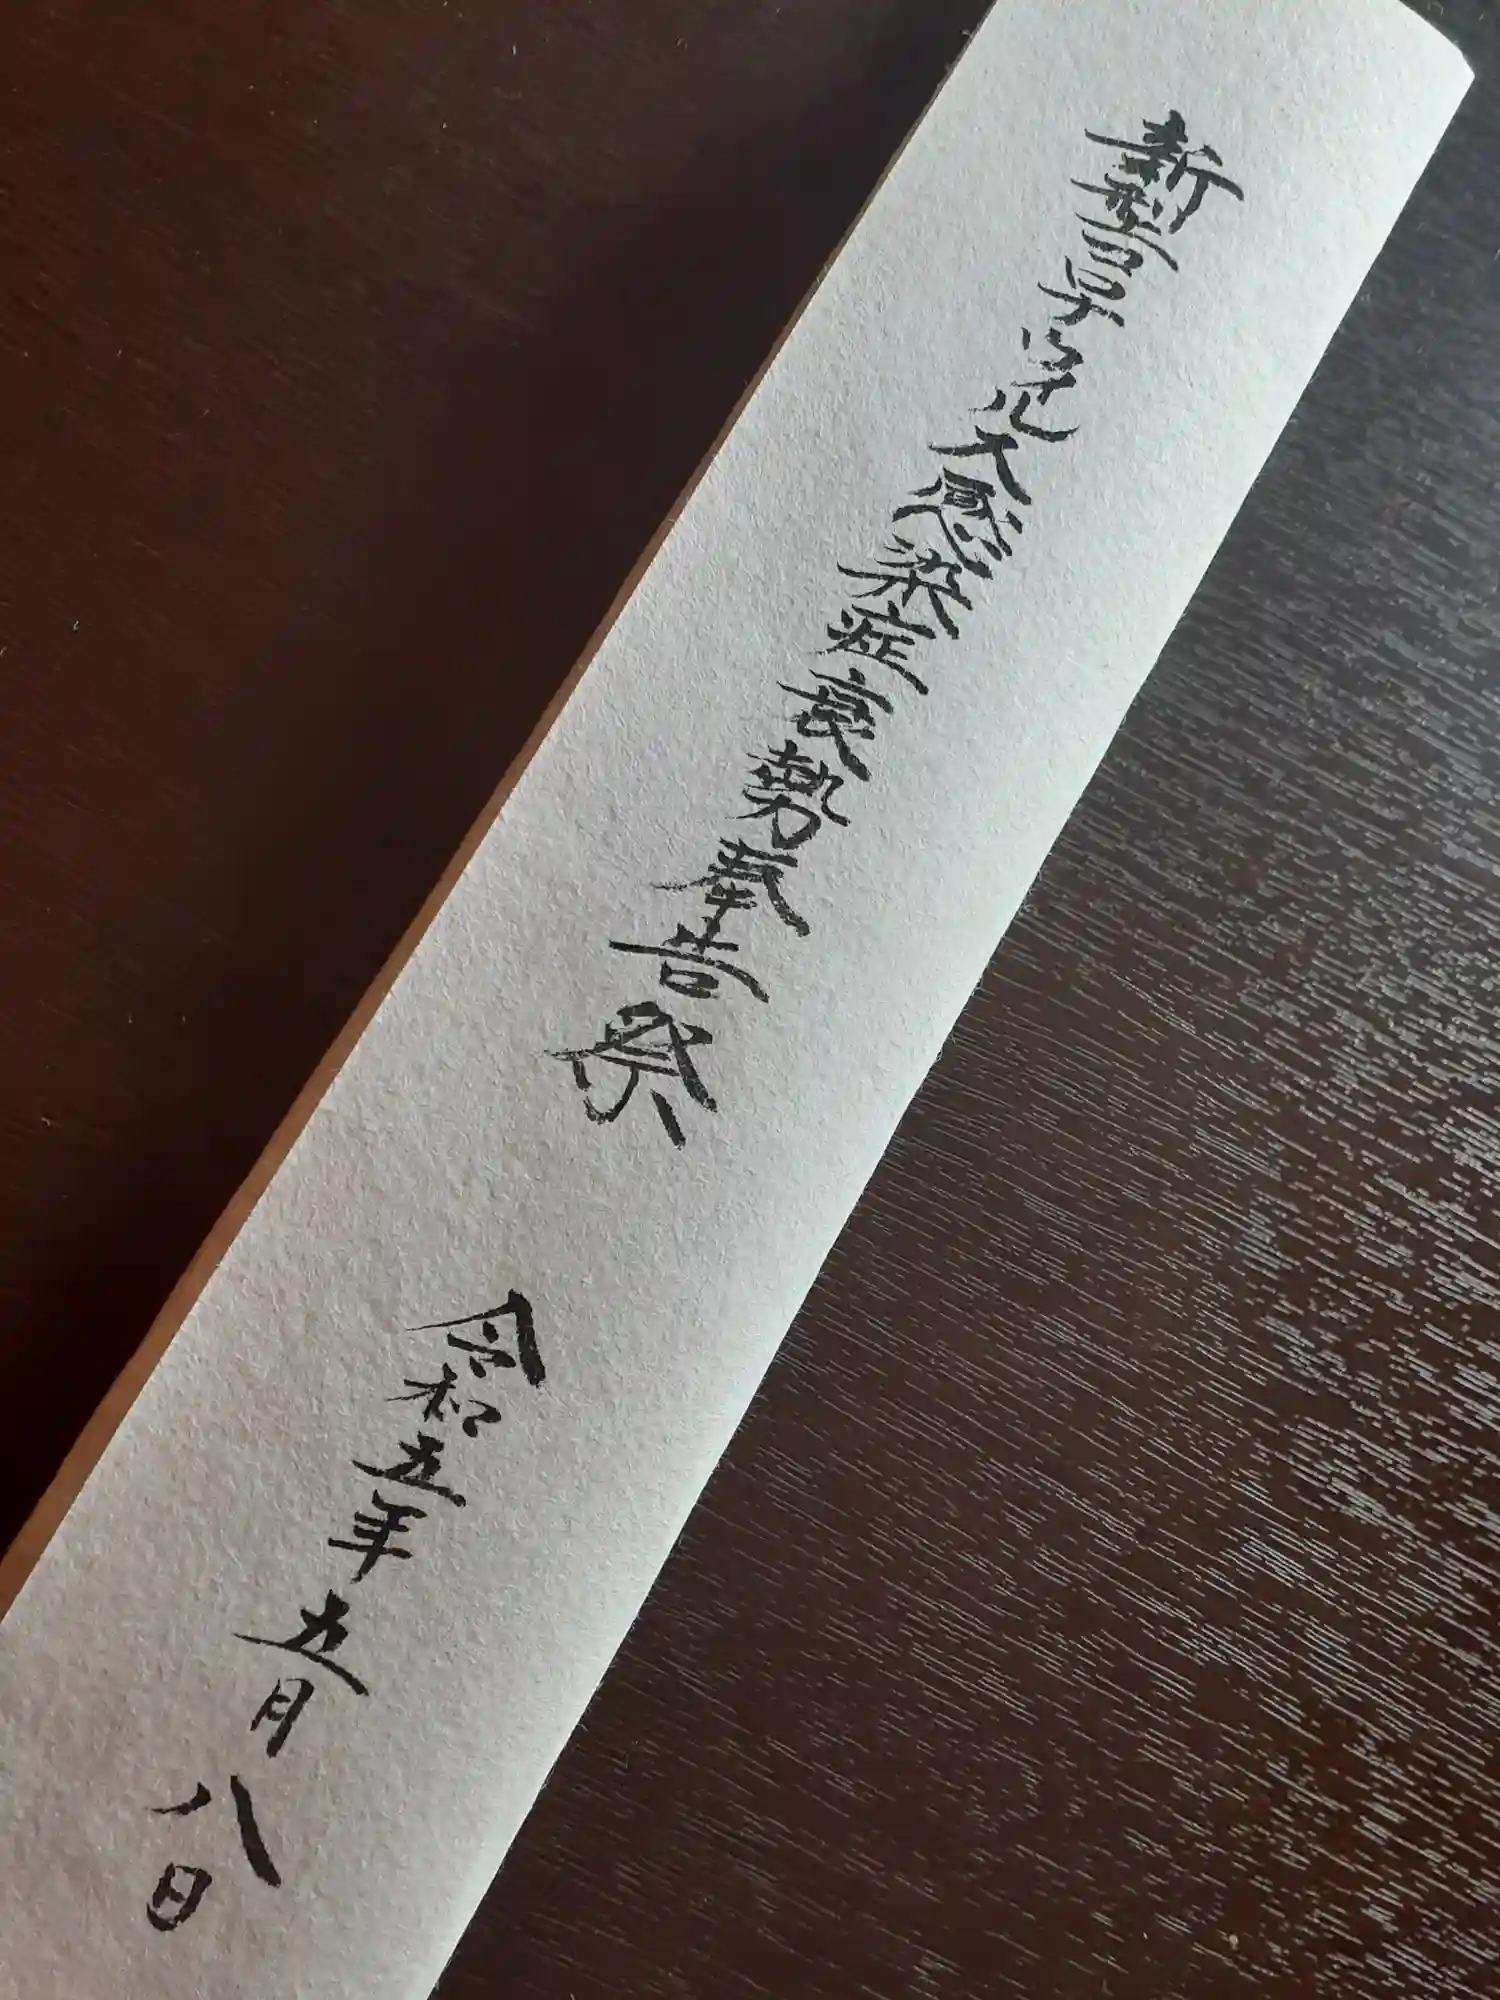 新型コロナウイルス感染症衰勢奉告祭
令和五年五月八日